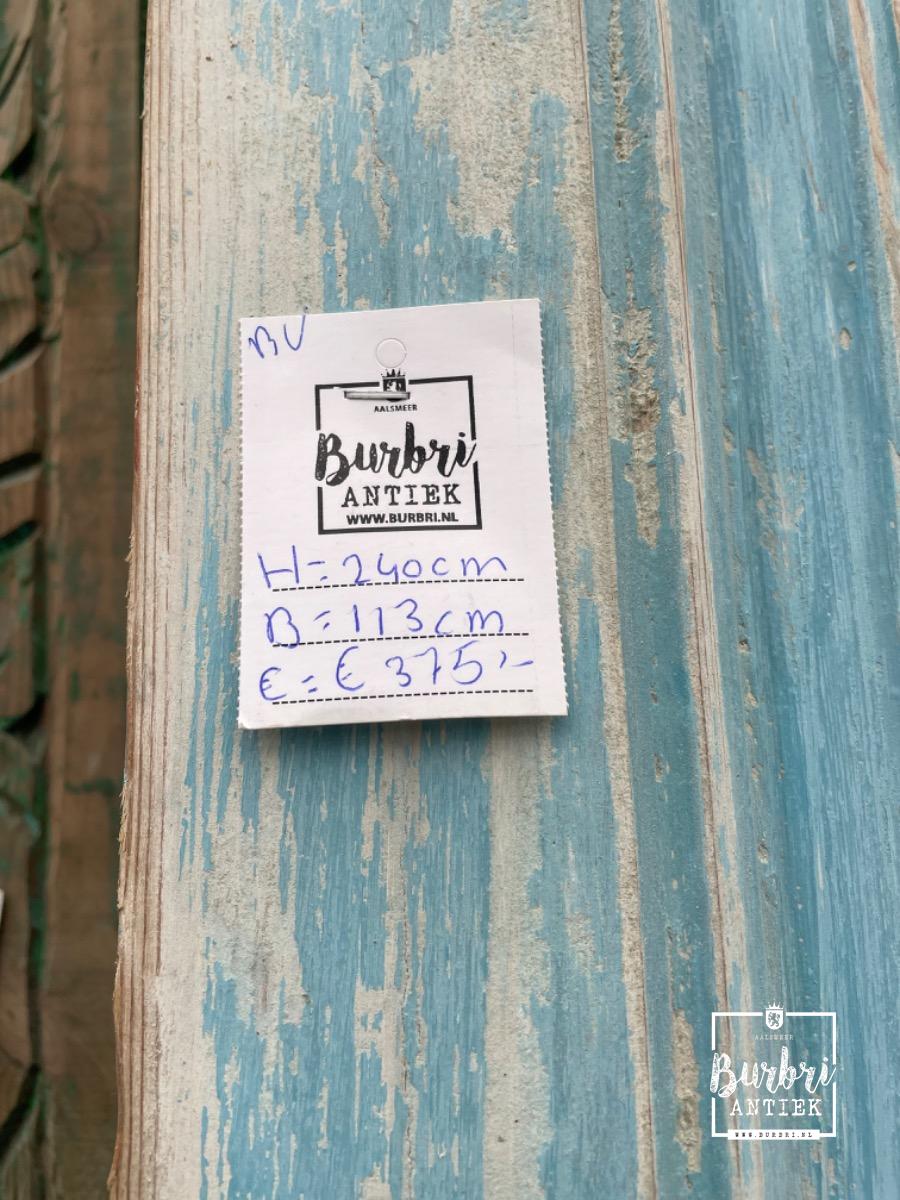 BV
AALSMEER
Burbri
ANTIEK
WWW.BURBRI.NL
H = 240cm
B = 113cm
€ = € 375,-
AALSMEER
Burbri
ANTIEK
WWW.BURBRI.NL